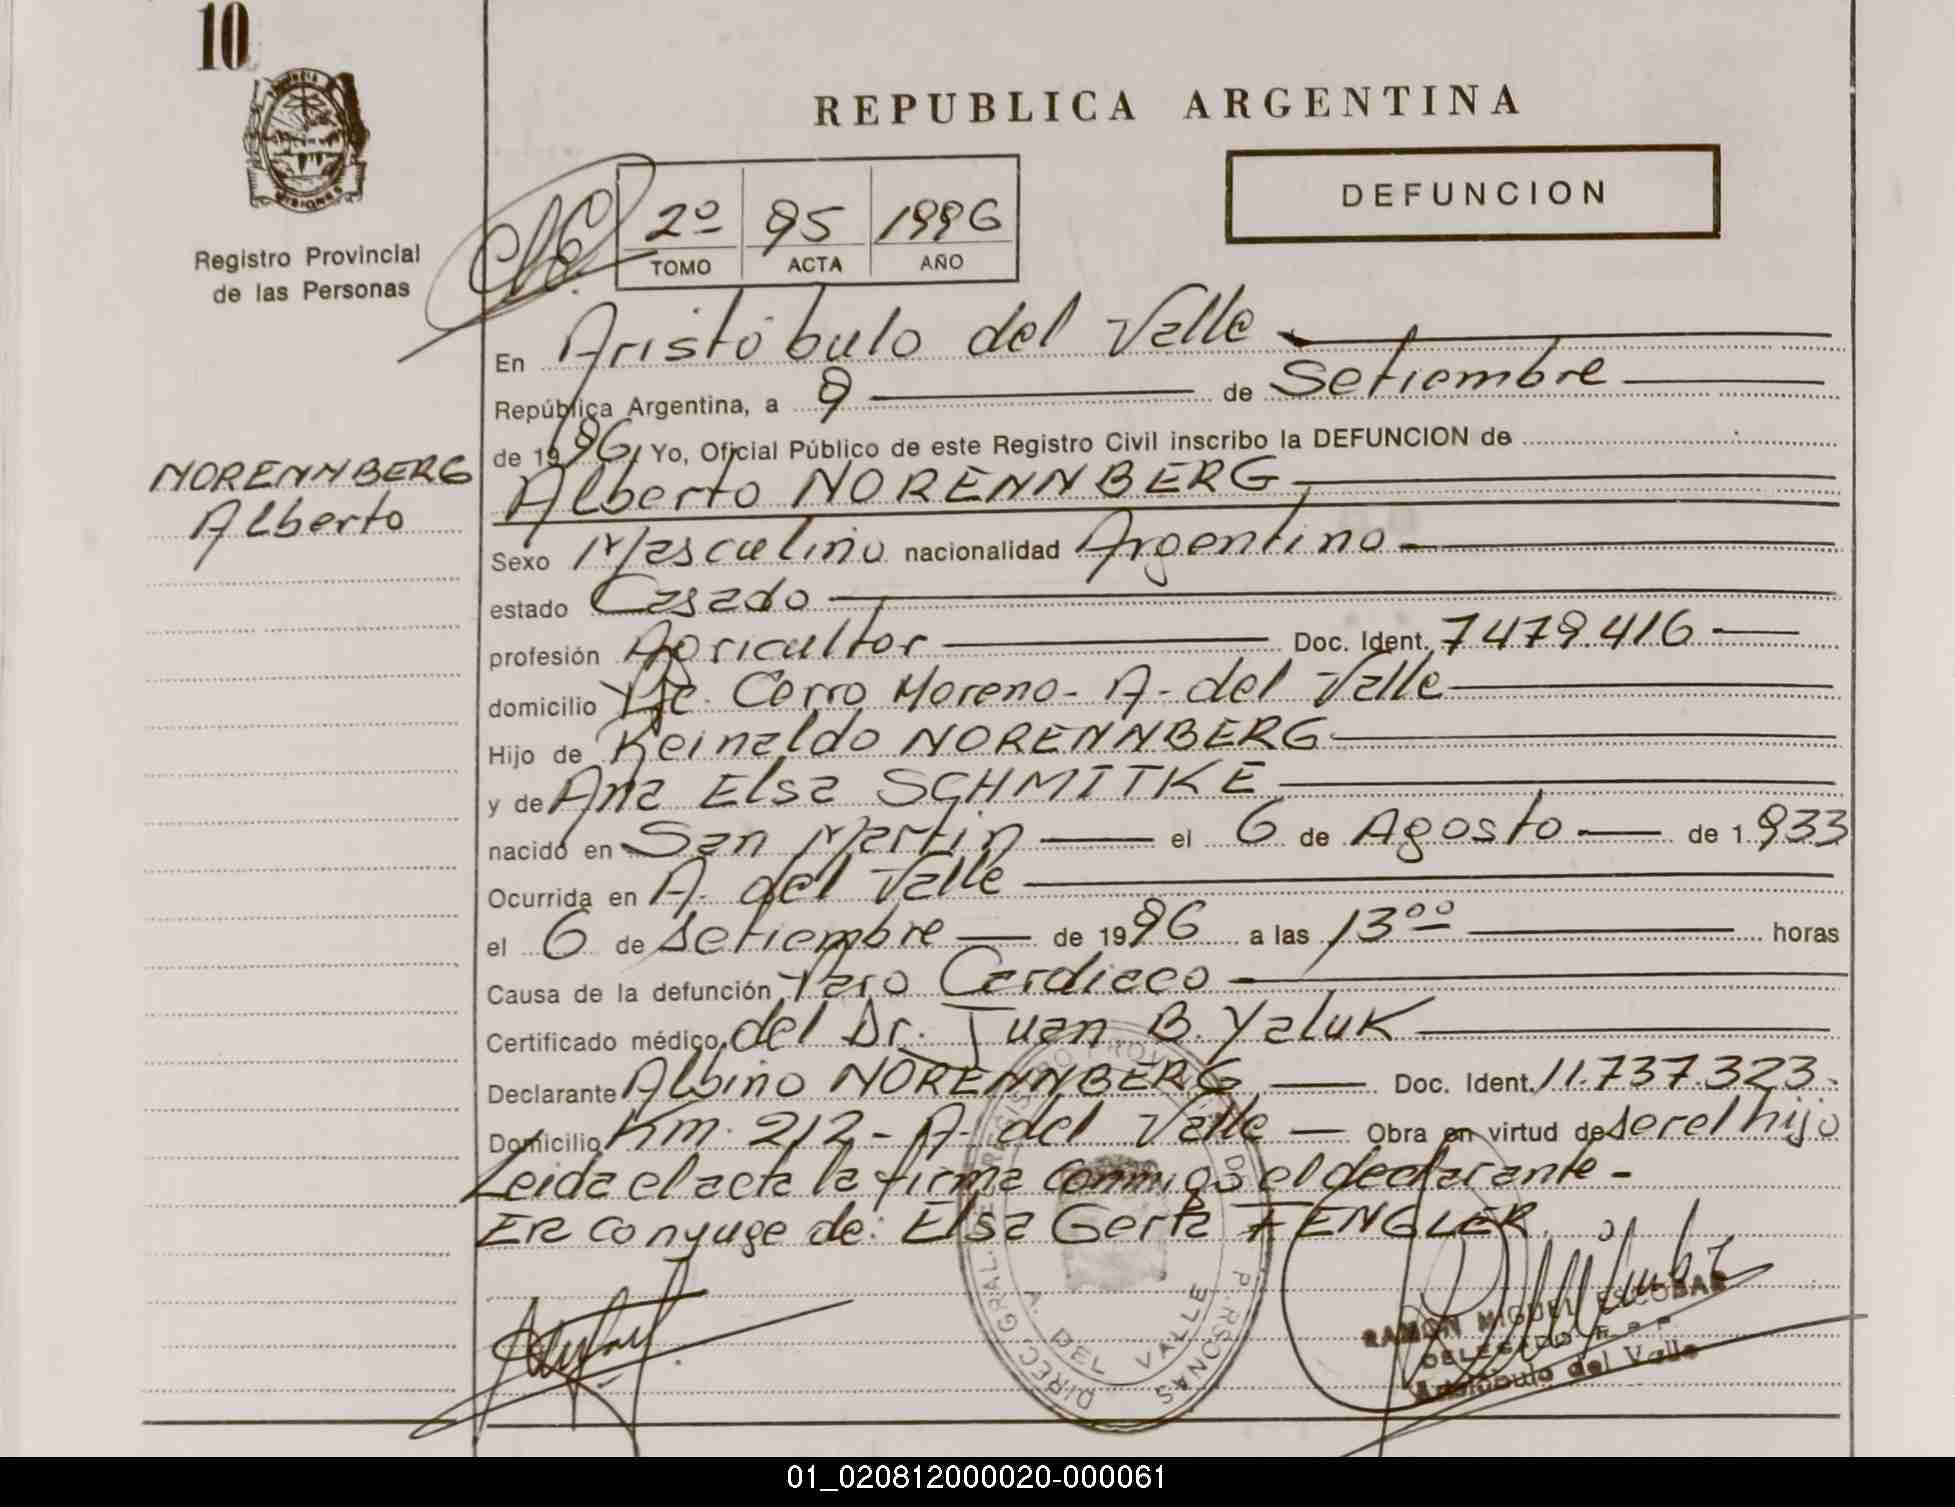 10
Registro Provincial
de las Personas
REPUBLICA ARGENTINA
DEFUNCION
2º 95 1996
TOMO ACTA AÑO
En Aristóbulo del Valle
República Argentina, a 9 de Setiembre
de 1996, Yo, Oficial Público de este Registro Civil inscribo la DEFUNCION de
NORENNBERG
Alberto
Alberto NORENNBERG
Sexo Masculino nacionalidad Argentino
estado Casado
profesión Agricultor Doc. Ident. 7479.416
domicilio Pje. Cerro Moreno - A. del Valle
Hijo de Reinaldo NORENNBERG
y de Ana Elsa SCHMITKE
nacido en San Martin el 6 de Agosto de 1.933
Ocurrida en A. del Valle
el 6 de Setiembre de 1996 a las 13ºº horas
Causa de la defunción Paro Cardiaco
Certificado médico del Dr. Juan B. Yaluk
Declarante Albino NORENNBERG Doc. Ident. 11.737.323.
Domicilio Km. 212 - A. del Valle Obra en virtud de ser el hijo
Leida el acta la firma conmigo el declarante -
Era conyuge de: Elsa Gerta FENGLER
DIREC. GRAL. DE REGISTRO PROV. DE P RSONAS
A. DEL VALLE
RAMON MIGUEL ESCOBAR
DELEGADO R. P. P.
Aristóbulo del Valle
01_020812000020-000061